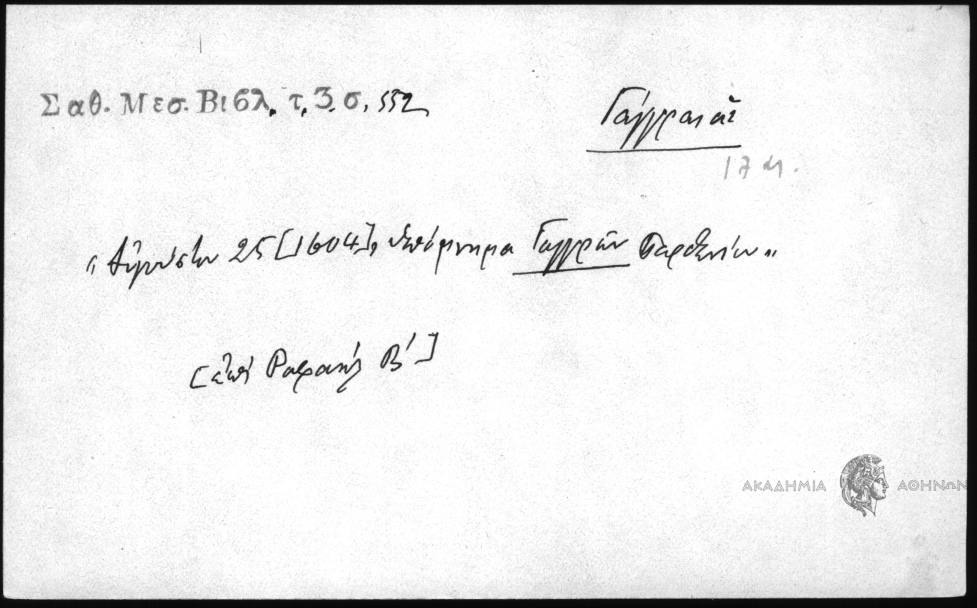 Σαθ. Μεσ. Βιβλ. τ. 3. σ. 552
Γάγγραι αἱ
17 αι.
"Αὐγούστου 25 [1604], ὑπόμνημα Γαγγρῶν Παρθενίου"
[ἐπὶ Ραφαὴλ Β΄]
ΑΚΑΔΗΜΙΑ ΑΘΗΝΩΝ